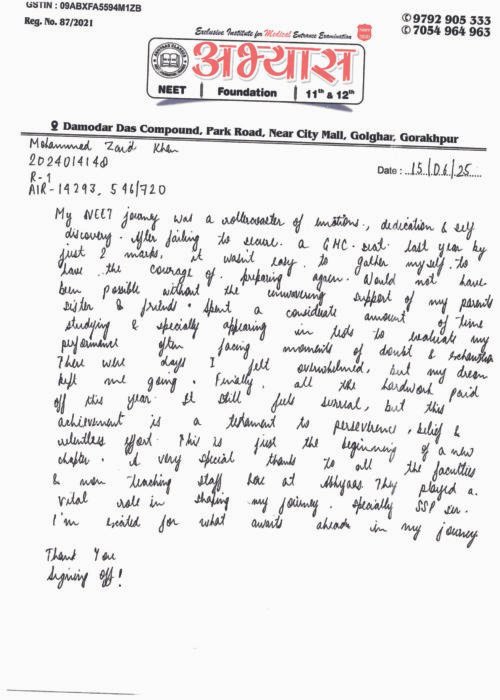 GSTIN : 09ABXFA5594M1ZB
Reg. No. 87/2021
✆ 9792 905 333
✆ 7054 964 963
Exclusive Institute for Medical Entrance Examination
अभ्यास
NEET | Foundation | 11th & 12th
Damodar Das Compound, Park Road, Near City Mall, Golghar, Gorakhpur
Mohammed Zaid Khan
2024014148
R-1
Date : 15/06/25
AIR-14293, 546/720
My NEET journey was a rollercoaster of emotions, dedication & self
discovery. After failing to secure a GMC seat last year by
just 2 marks, it wasn't easy to gather myself to
have the courage of preparing again. Would not have
been possible without the unwavering support of my parents
sister & friends. Spent a considerate amount of time
studying & specially appearing in tests to evaluate my
performance often facing moments of doubt & exhaustion
There were days I felt overwhelmed, but my dream
kept me going. Finally, all the hardwork paid
off this year. It still feels surreal, but this
achievement is a testament to perseverence, belief &
relentless effort. This is just the beginning of a new
chapter. A very special thanks to all the faculties
& non teaching staff here at Abhyaas They played a
vital role in shaping my journey. specially SSP sir.
I'm excited for what awaits aheads in my journey
Thank You
Signing Off!